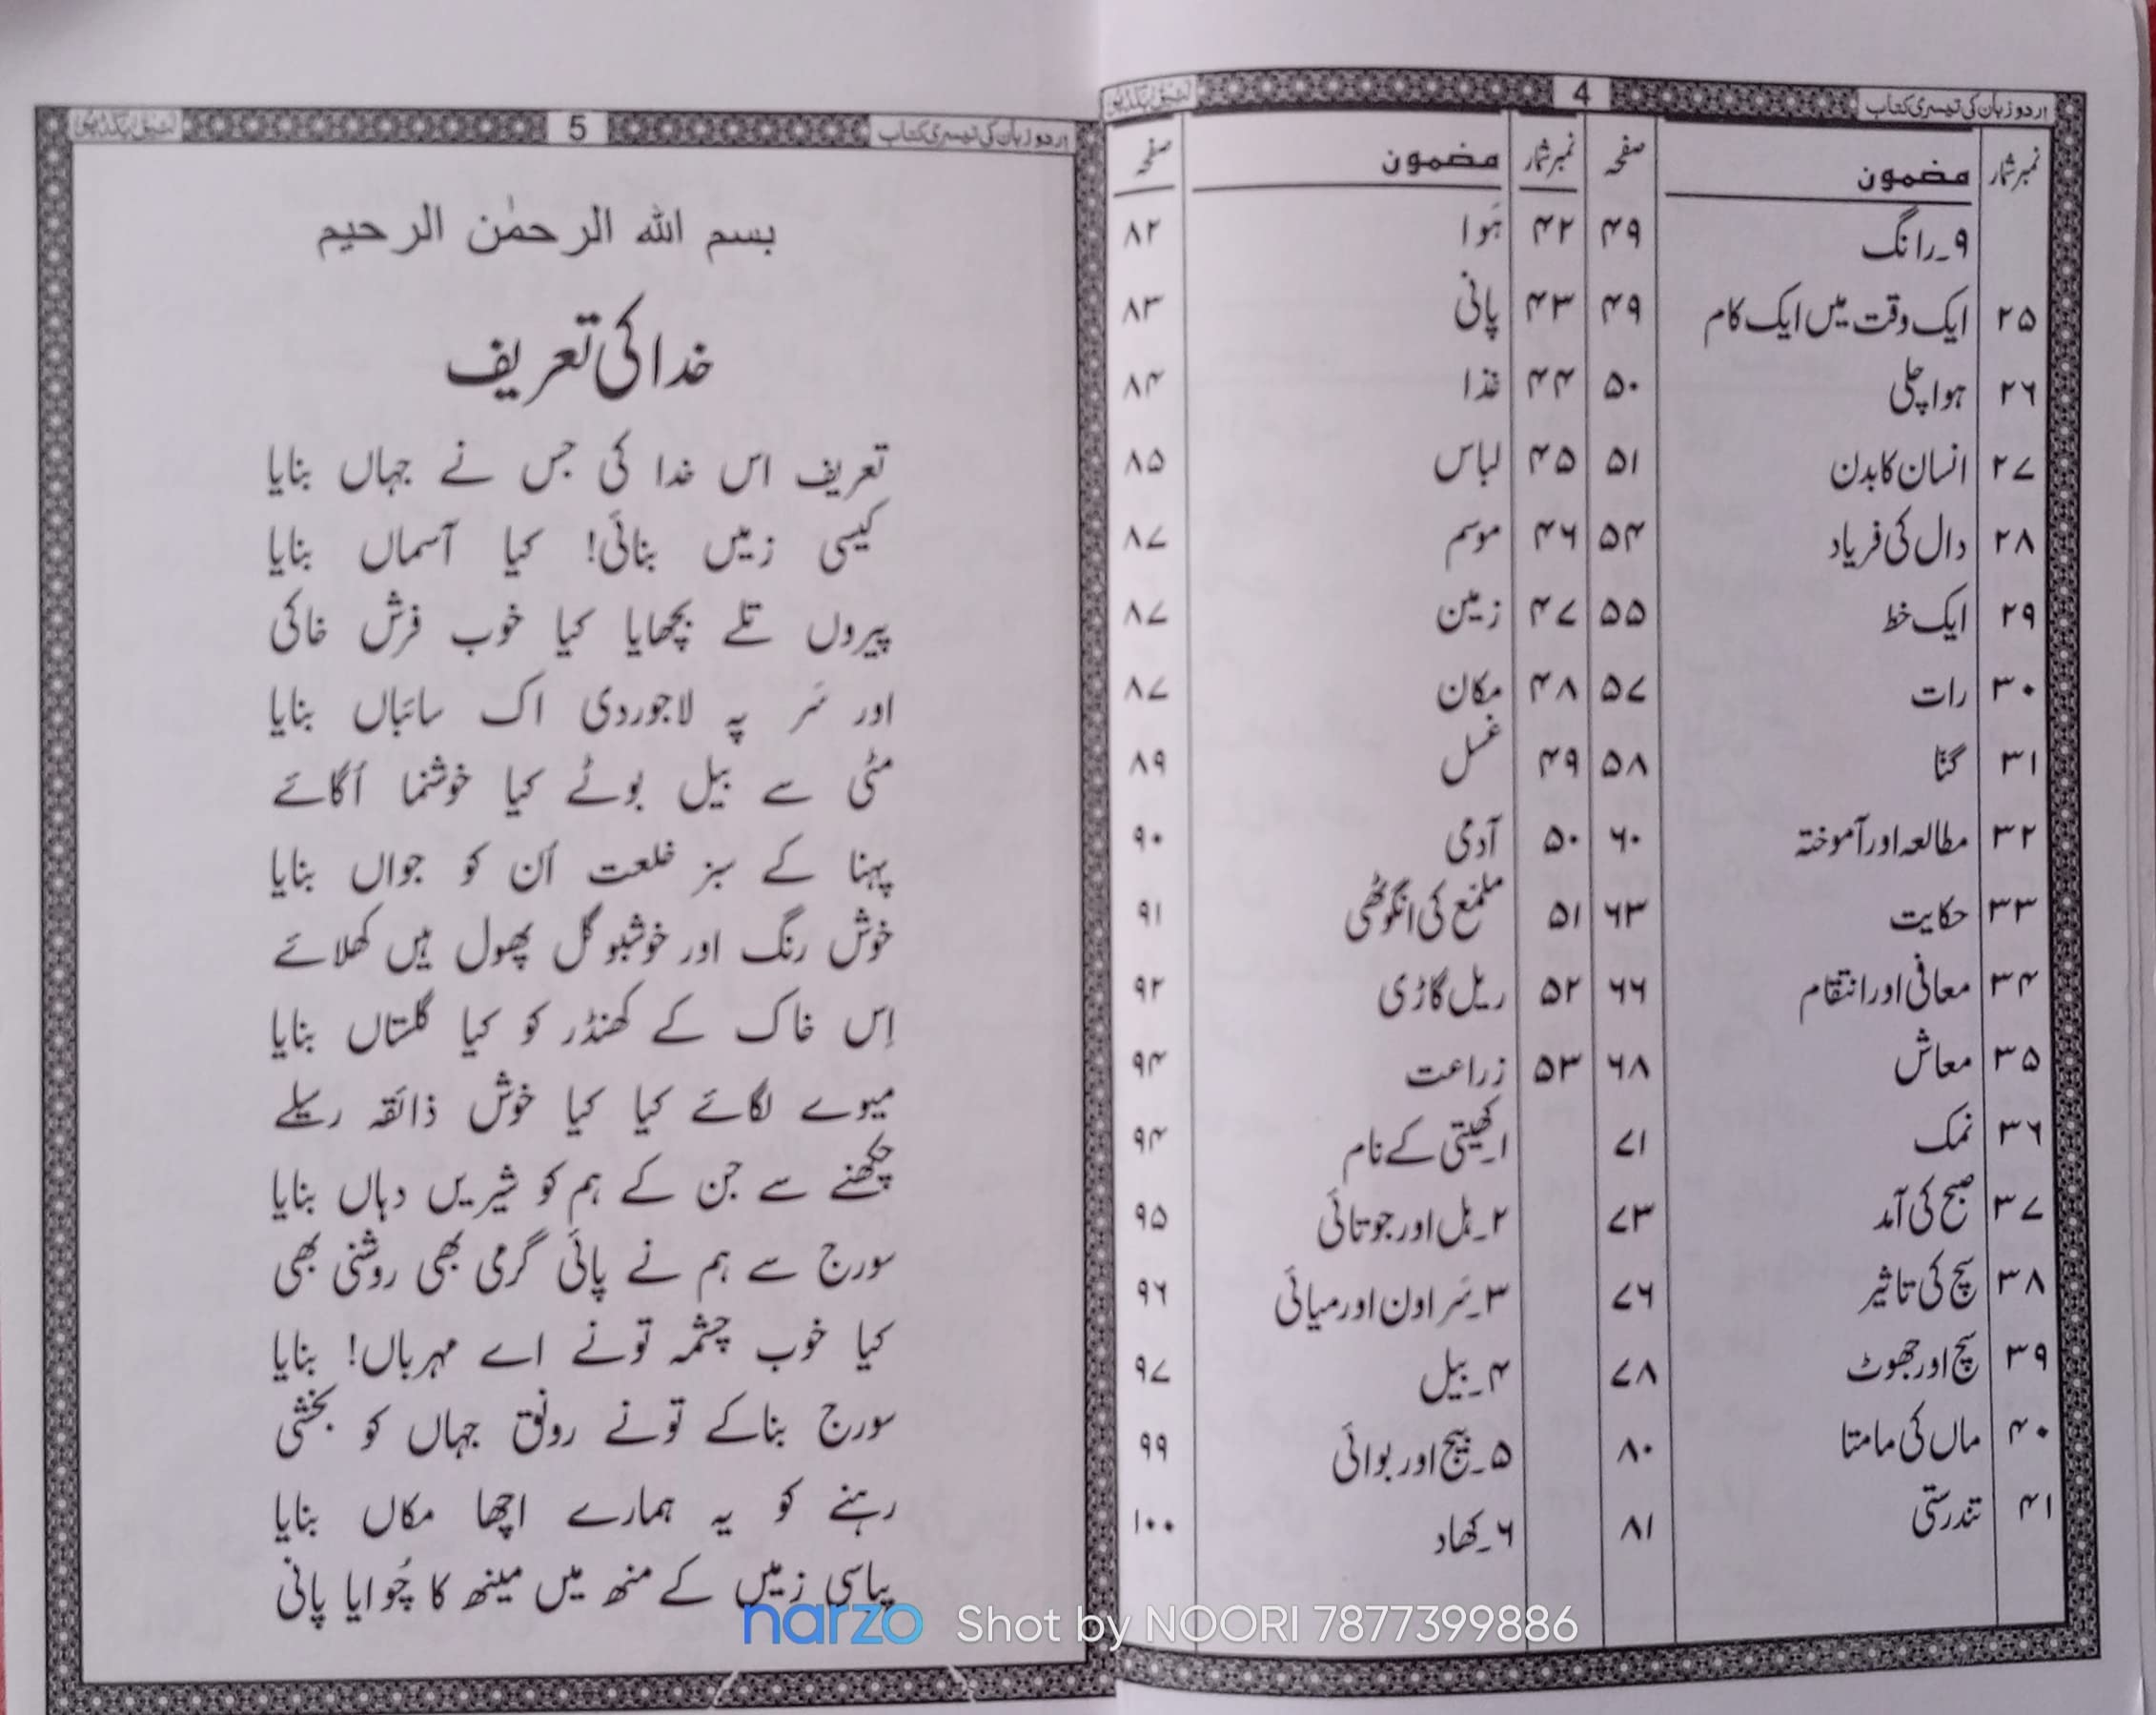 اردو زبان کی تیسری کتاب
4
نمبر شمار مضمون صفحہ نمبر شمار مضمون صفحہ
۹۔رانگ ۴۹ ۴۲ ہَوا ۸۲
۲۵ ایک وقت میں ایک کام ۴۹ ۴۳ پانی ۸۳
۲۶ ہوا چلی ۵۰ ۴۴ غذا ۸۴
۲۷ انسان کا بدن ۵۱ ۴۵ لباس ۸۵
۲۸ دال کی فریاد ۵۴ ۴۶ موسم ۸۷
۲۹ ایک خط ۵۵ ۴۷ زمین ۸۷
۳۰ رات ۵۷ ۴۸ مکان ۸۷
۳۱ گنّا ۵۸ ۴۹ غسل ۸۹
۳۲ مطالعہ اور آموختہ ۶۰ ۵۰ آدمی ۹۰
۳۳ حکایت ۶۳ ۵۱ ملمّع کی انگوٹھی ۹۱
۳۴ معافی اور انتقام ۶۶ ۵۲ ریل گاڑی ۹۲
۳۵ معاش ۶۸ ۵۳ زراعت ۹۴
۳۶ نمک ۷۱ ۱۔کھیتی کے نام ۹۴
۳۷ صبح کی آمد ۷۳ ۲۔ہل اور جوتائی ۹۵
۳۸ سچ کی تاثیر ۷۶ ۳۔سَراون اور میائی ۹۶
۳۹ سچ اور جھوٹ ۷۸ ۴۔بیل ۹۷
۴۰ ماں کی مامتا ۸۰ ۵۔بیج اور بوائی ۹۹
۴۱ تندرستی ۸۱ ۶۔کھاد ۱۰۰
اردو زبان کی تیسری کتاب
5
بسم اللہ الرحمٰن الرحیم
خدا کی تعریف
تعریف اس خدا کی جس نے جہاں بنایا
کیسی زمیں بنائی! کیا آسماں بنایا
پیروں تلے بچھایا کیا خوب فرش خاکی
اور سَر پہ لاجوردی اک سائباں بنایا
مٹی سے بیل بوٹے کیا خوشنما اُگائے
پہنا کے سبز خلعت اُن کو جواں بنایا
خوش رنگ اور خوشبو گل پھول ہیں کھلائے
اِس خاک کے کھنڈر کو کیا گلستاں بنایا
میوے لگائے کیا کیا خوش ذائقہ رسیلے
چکھنے سے جن کے ہم کو شیریں دہاں بنایا
سورج سے ہم نے پائی گرمی بھی روشنی بھی
کیا خوب چشمہ تونے اے مہرباں! بنایا
سورج بناکے تونے رونق جہاں کو بخشی
رہنے کو یہ ہمارے اچھا مکاں بنایا
پیاسی زمیں کے منھ میں مینھ کا چُوایا پانی
narzo Shot by NOORI 7877399886